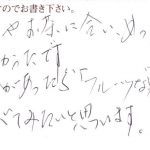 のでお書き下さい。
やお茶に合い、めっ
かったです
があったら「フルーツなら
べてみたいと思います。